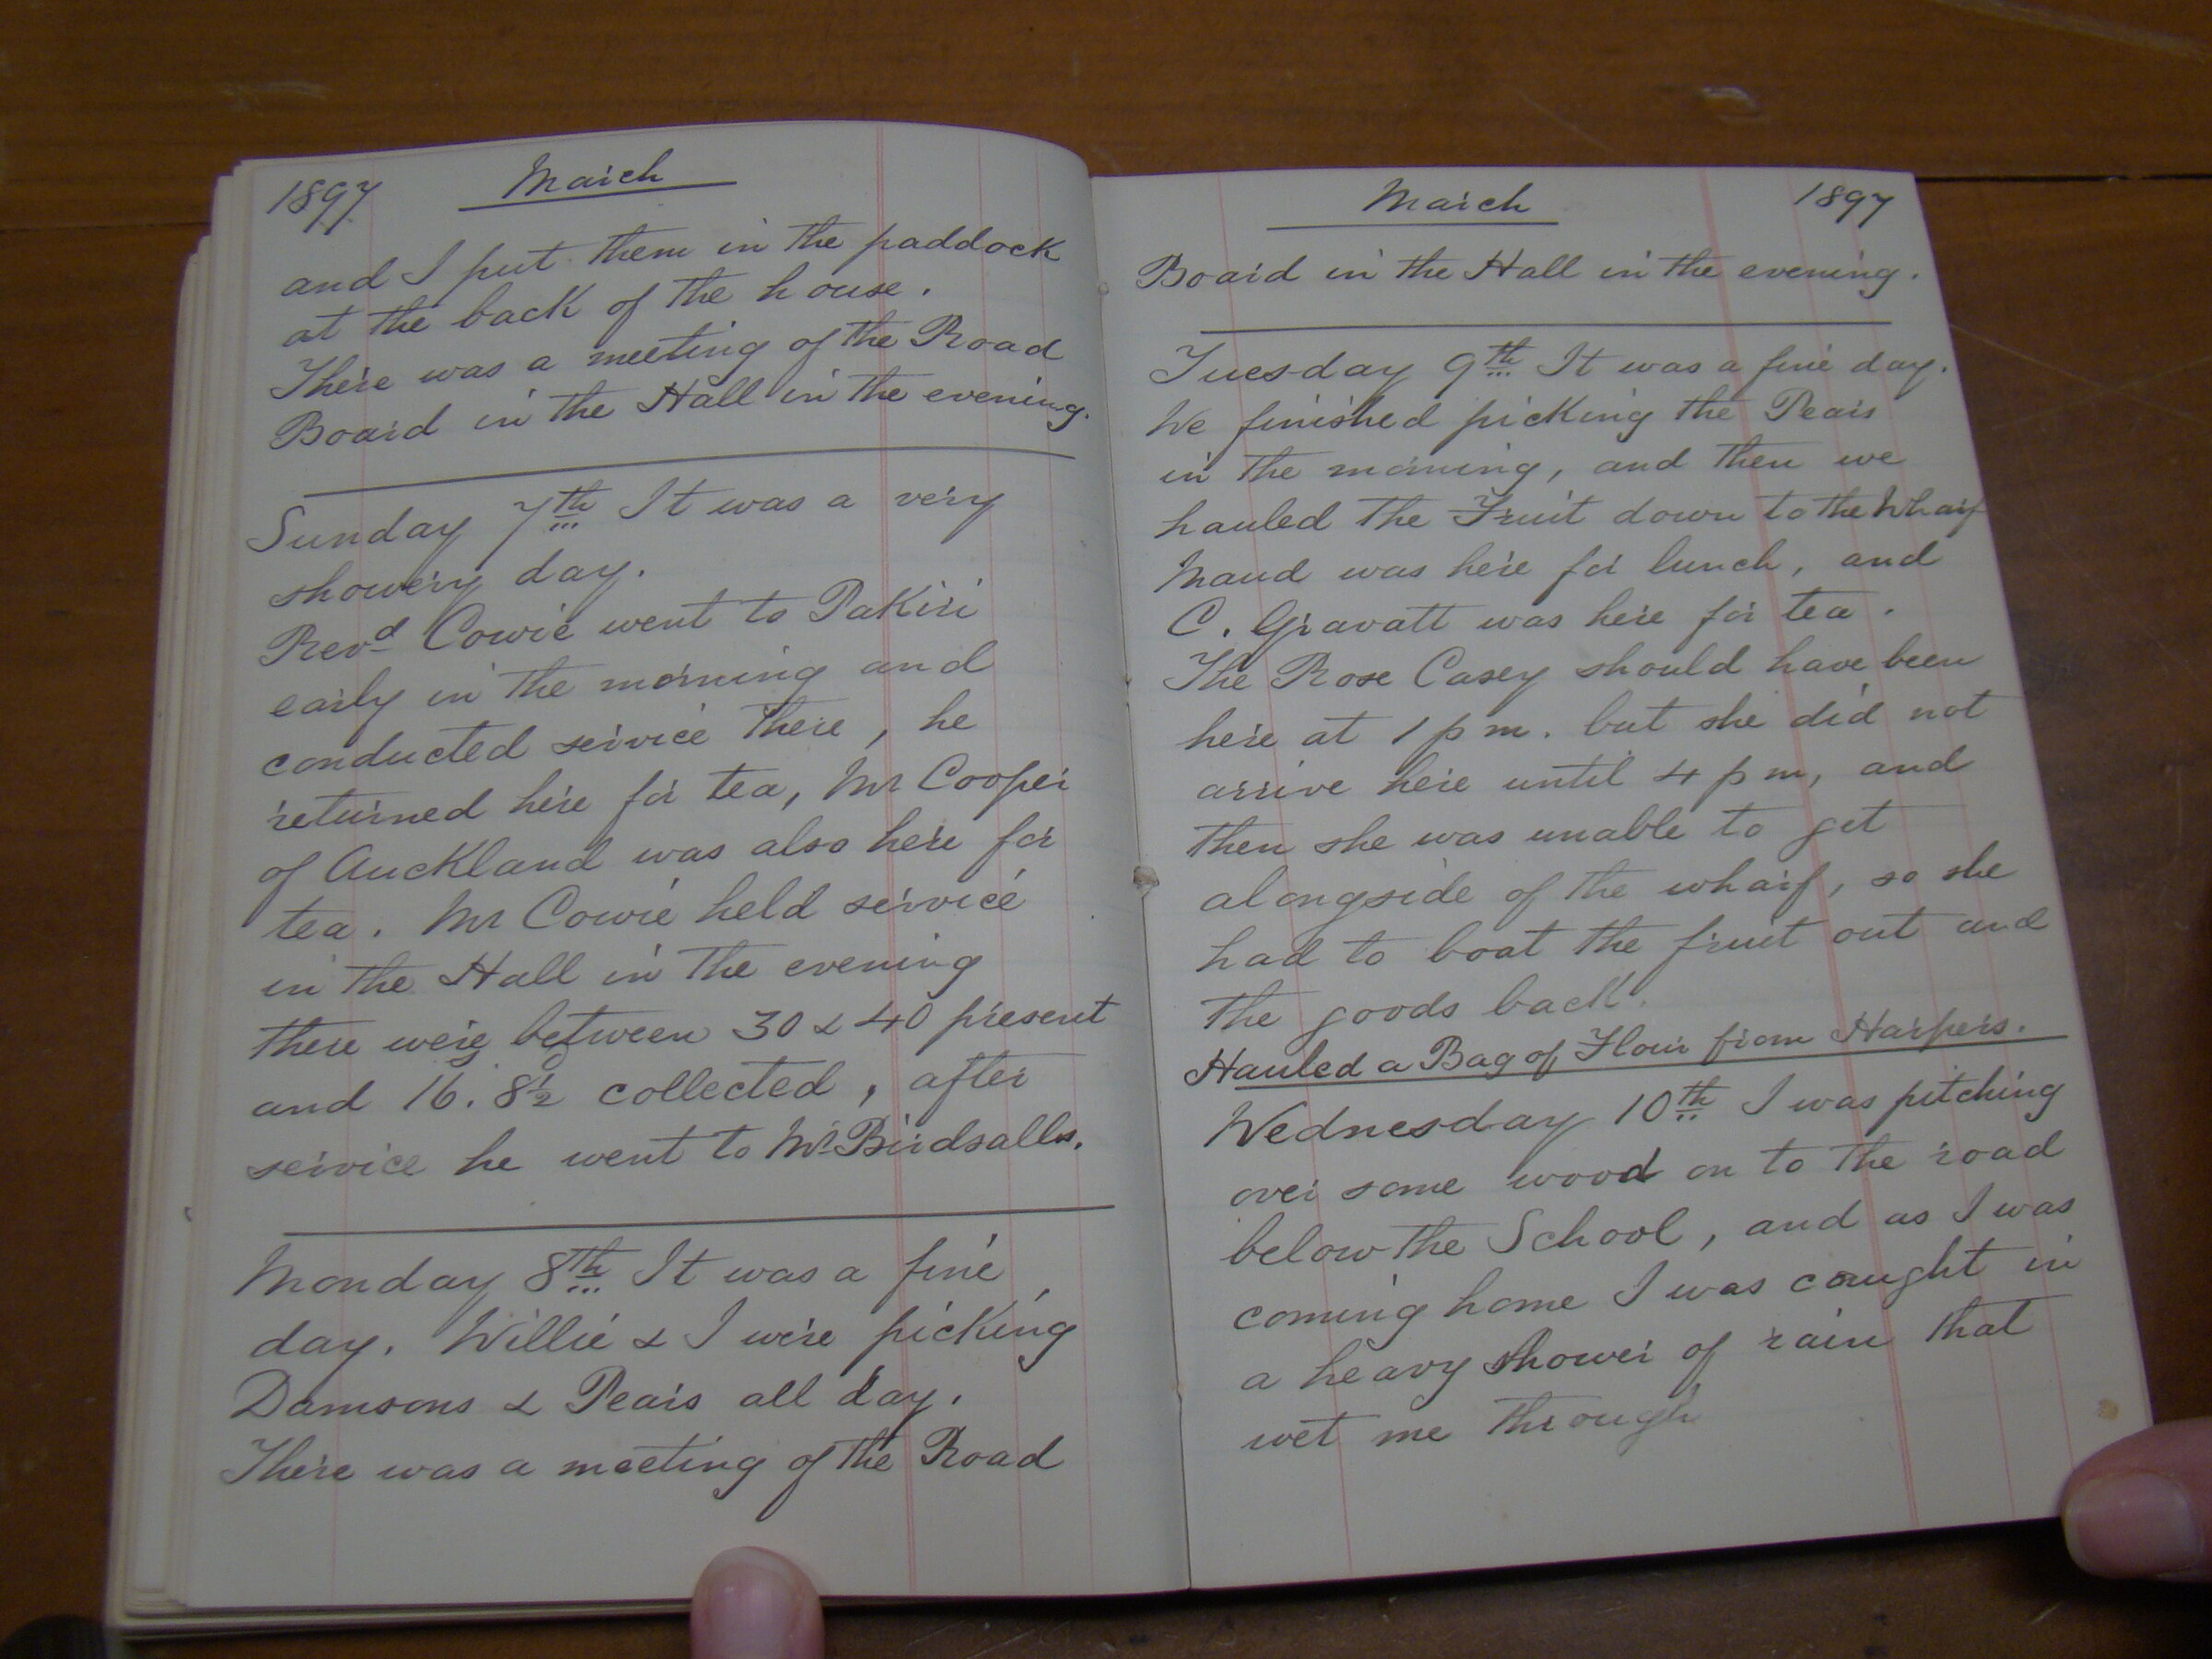 1897 March
and I put them in the paddock
at the back of the house.
There was a meeting of the Road
Board in the Hall in the evening.
Sunday 7th It was a very
showery day.
Revd Cowie went to Pakiri
early in the morning and
conducted service there, he
returned here for tea, Mr Cooper
of Auckland was also here for
tea. Mr Cowie held service
in the Hall in the evening
there were between 30 & 40 present
and 16.8½ collected, after
service he went to Mr Birdsalls.
Monday 8th It was a fine
day. Willie & I were picking
Damsons & Pears all day.
There was a meeting of the Road
March 1897
Board in the Hall in the evening.
Tuesday 9th It was a fine day.
We finished picking the Pears
in the morning, and then we
hauled the Fruit down to the Wharf
Maud was here for lunch, and
C. Gravatt was here for tea.
The Rose Casey should have been
here at 1 p m. but she did not
arrive here until 4 p m, and
then she was unable to get
alongside of the wharf, so she
had to boat the fruit out and
the goods back.
Hauled a Bag of Flour from Harpers.
Wednesday 10th I was pitching
over some wood on to the road
below the School, and as I was
coming home I was caught in
a heavy shower of rain that
wet me through